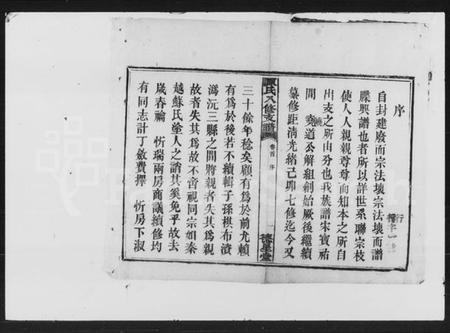 序
自封建廢而宗法壞宗法壞而譜
牒興譜也者所以詳世系聯宗枝
使人人親親尊尊而知本之所自
出支之所由分也我族譜宋寶祐
間 奕道公解組劍始厥後繼續
纂修距清光緒己卯七修迄今又
氏八修支譜
卷首 序
三十餘年稔矣顧有為於前尤賴
有為於後若不續輯子孫棋布漬
溈沅三縣之間將親者失其為親
故者失其為故不啻視同宗如秦
越蘇氏塗人之誚其奚免乎故去
歲春禴 忻瑞兩房商議續修均
有同志計丁斂費擇 忻房下淑